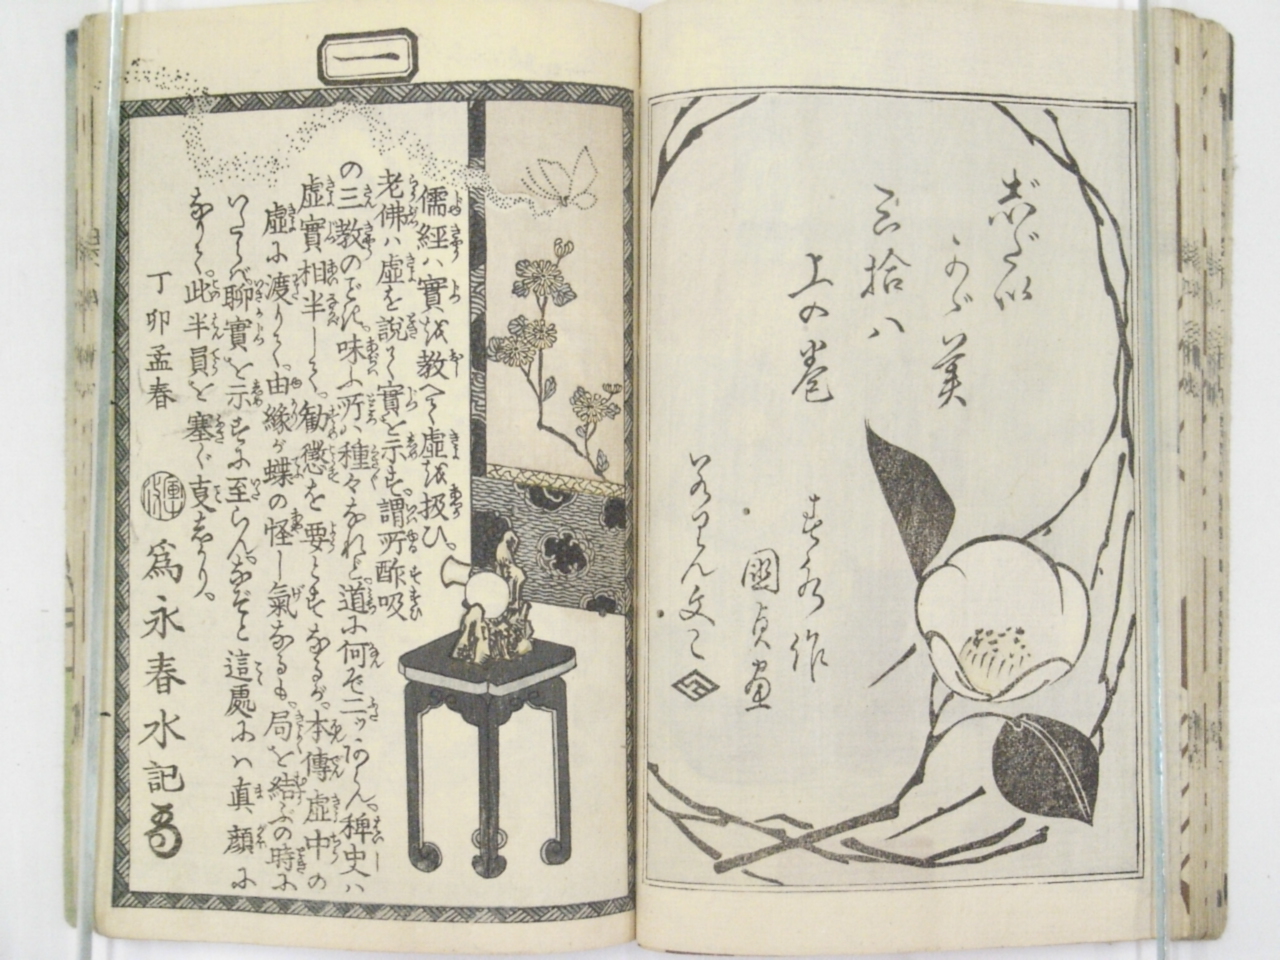 志らぬひ
ものがたり
三拾八
上の巻
春水作
國貞画
一
儒經ハ實を教へて虚を扱ひ。
老佛ハ虚を説て實を示す。謂所酢吸
の三教のごとし。味ふ所ハ種々なれど道に何ぞ二ッあらん。稗史ハ
虚實相半して。勧懲を要とするなるが。本傳虚中の
虚に渡りて。由縁が蝶の怪し氣なるも。局を結ぶの時に
いたらバ聊實を示すに至らん。などと這處にハ真顔に
なりて此半員を塞ぐ事しかり。
丁卯孟春
為永春水記